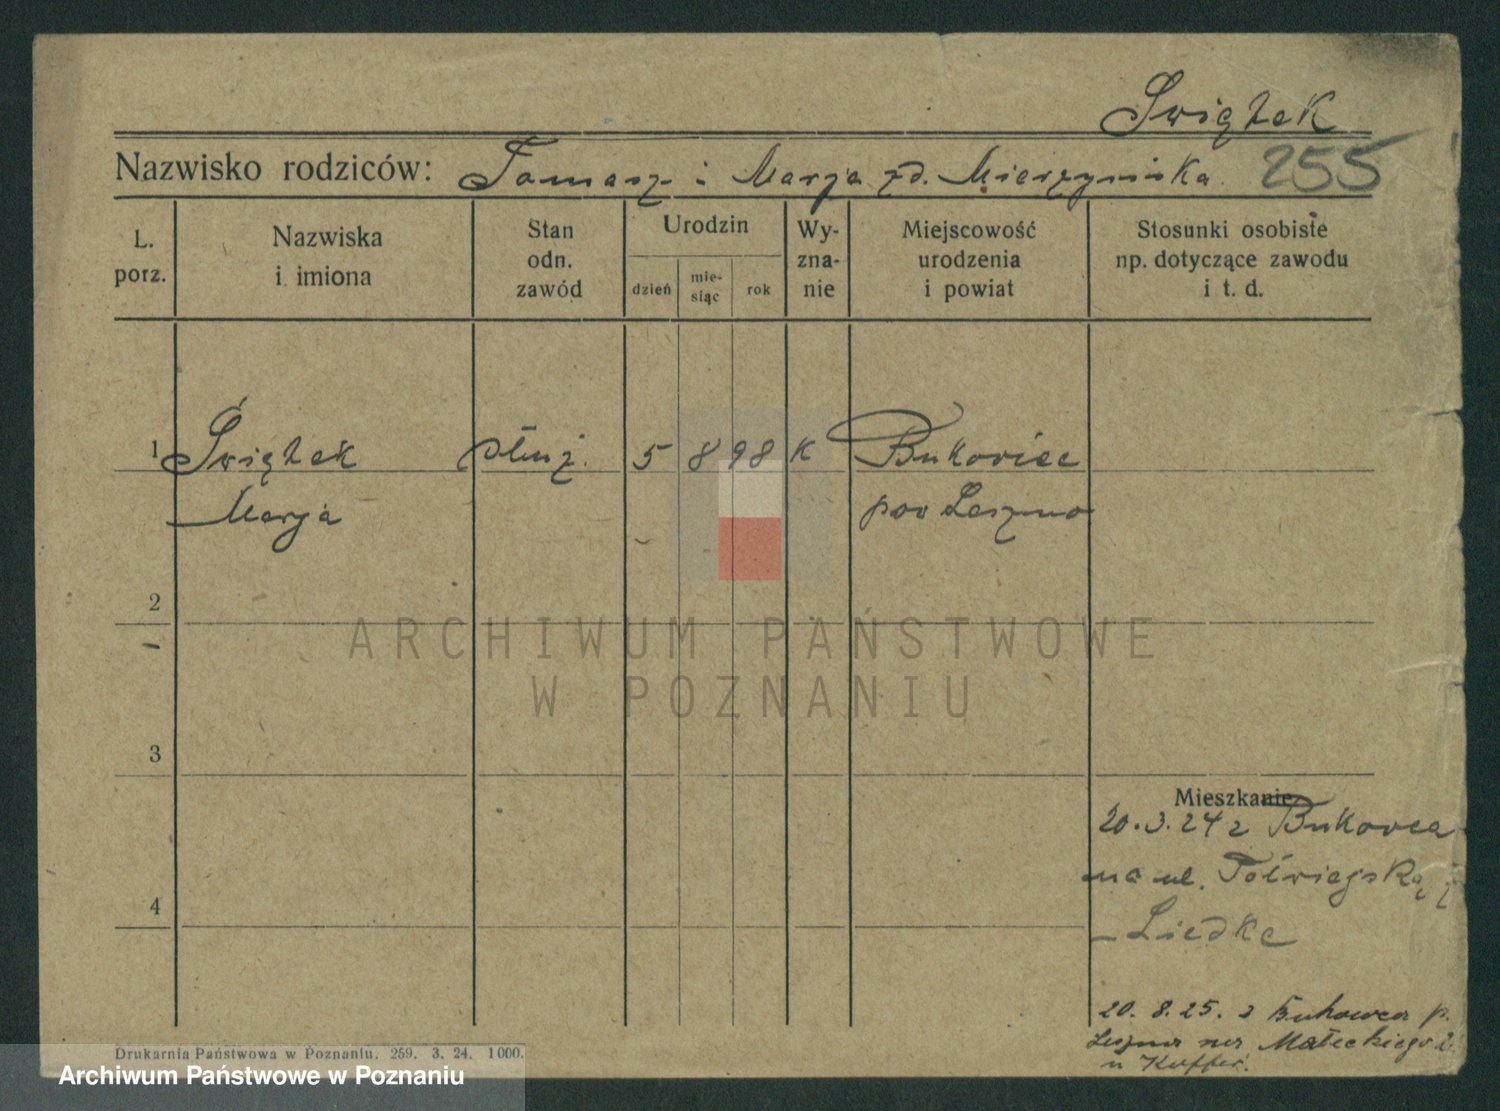 Świątek
Nazwisko rodziców: Tomasz i Marja zd. Mierzyńska 255
L. porz.
Nazwiska i imiona
Stan odn. zawód
Urodzin
dzień
mie-siąc
rok
Wy-zna-nie
Miejscowość urodzenia i powiat
Stosunki osobiste np. dotyczące zawodu i t. d.
1 Świątek służ. 5 8 98 K Bukowiec
Marja pow Leszno
2
3
4
Mieszkanie
20.3.24 z Bukowca
na ul.
Liedke
20. 8. 25. z Bukowca p.
Leszna na Małeckiego
u Kuffer.
ARCHIWUM PAŃSTWOWE
W POZNANIU
Drukarnia Państwowa w Poznaniu. 259. 3. 24. 1000.
Archiwum Państwowe w Poznaniu